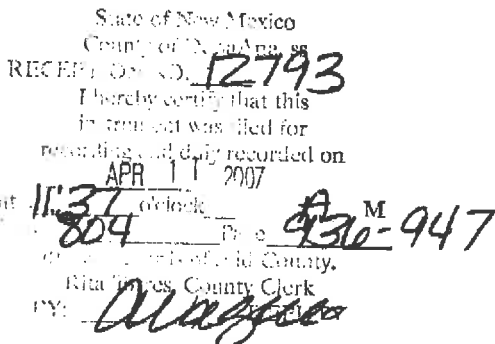 State of New Mexico
County of Dona Ana, ss
RECEPTION NO. 12793
I hereby certify that this
instrument was filed for
recording and duly recorded on
APR 11 2007
at 11:37 o'clock A M
804 Page 936-947
of said County.
Rita Torres, County Clerk
BY: